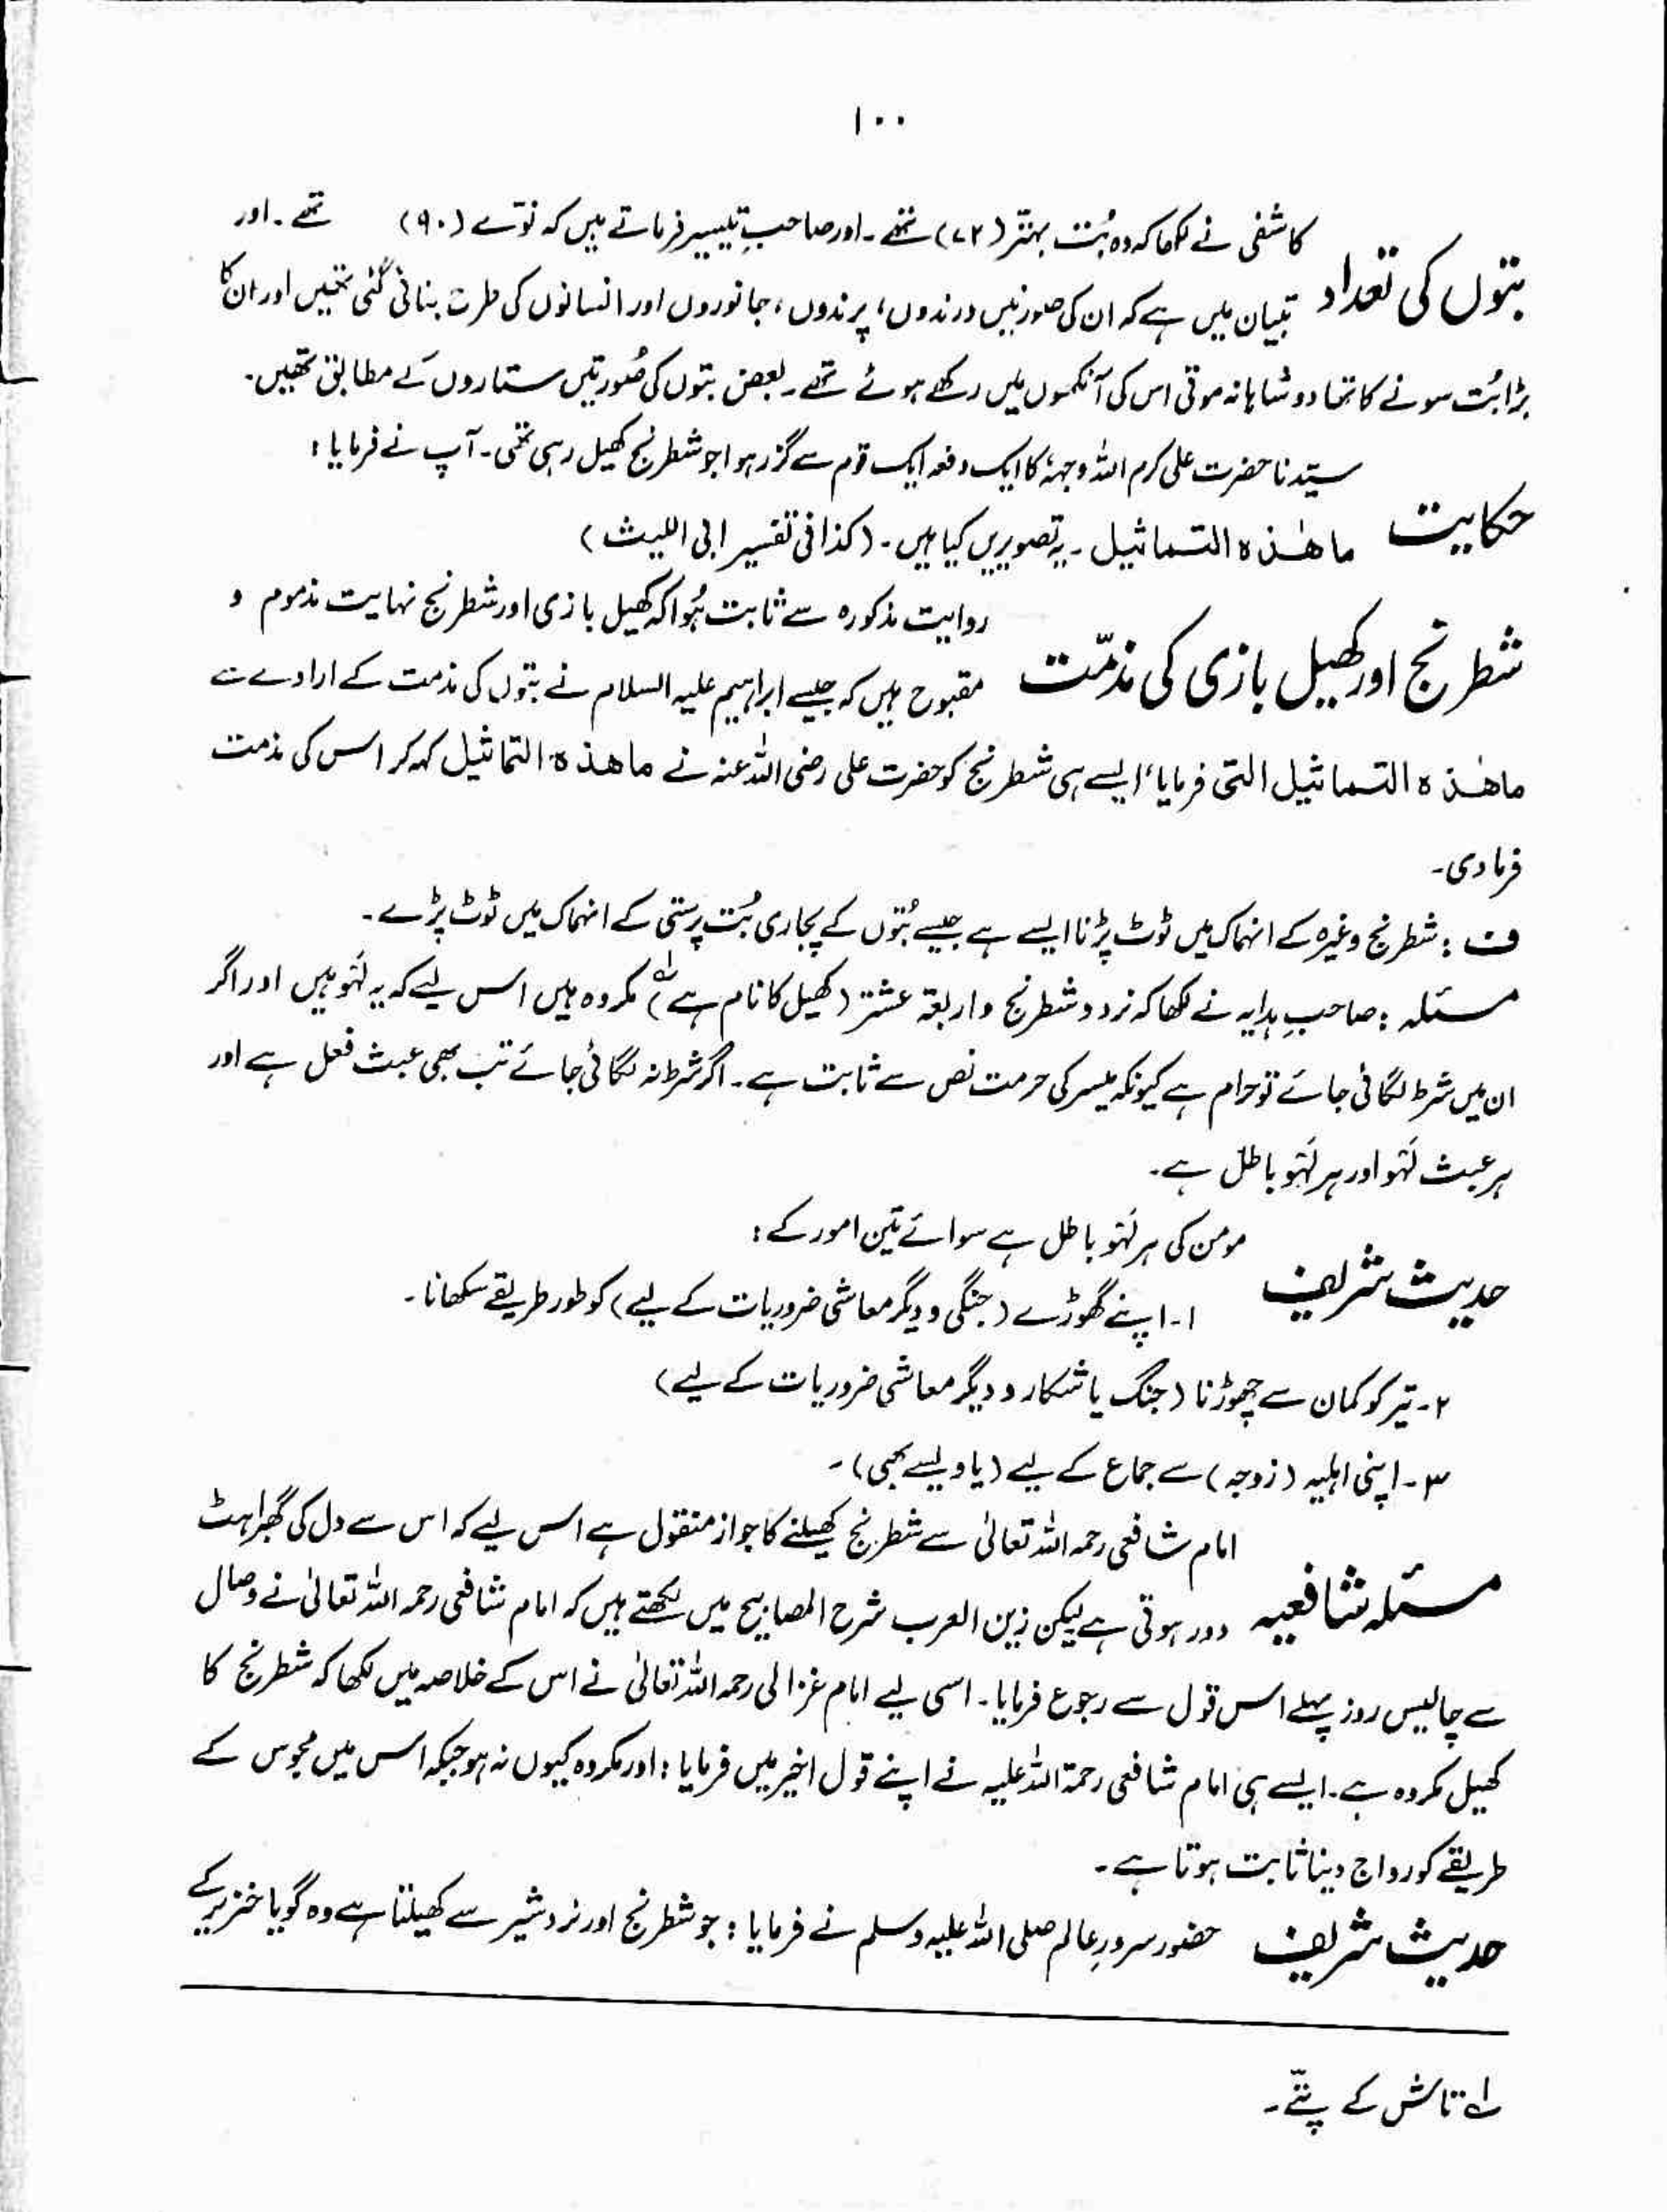 ۱۰۰
بتوں کی تعداد کاشفی نے لکھا کہ وہ بُت بہتّر (۷۲) تھے۔ اور صاحبِ تیسیر فرماتے ہیں کہ نوّے (۹۰) تھے۔ اور
تبیان میں ہے کہ ان کی صورتیں درندوں، پرندوں، جانوروں اور انسانوں کی طرح بنائی گئی تھیں اور ان کا
بڑا بُت سونے کا تھا دو شاہانہ موتی اس کی آنکھوں میں رکھے ہوئے تھے۔ بعض بتوں کی صُورتیں ستاروں کے مطابق تھیں۔
حکایت سیّدنا حضرت علی کرم اللہ وجہہٗ کا ایک دفعہ ایک قوم سے گزر ہوا جو شطرنج کھیل رہی تھی۔ آپ نے فرمایا:
ما هٰذه التماثیل ۔ یہ تصویریں کیا ہیں۔ (کذا فی تفسیر ابی اللیث)
شطرنج اور کھیل بازی کی مذمّت روایت مذکورہ سے ثابت ہُوا کہ کھیل بازی اور شطرنج نہایت مذموم و
مقبوح ہیں کہ جیسے ابراہیم علیہ السلام نے بتوں کی مذمت کے ارادے سے
ما هٰذه التماثیل التی فرمایا، ایسے ہی شطرنج کو حضرت علی رضی اللہ عنہ نے ما هذه التماثیل کہہ کر اس کی مذمت
فرما دی۔
ف : شطرنج وغیرہ کے انہماک میں ٹوٹ پڑنا ایسے ہے جیسے بُتوں کے پجاری بُت پرستی کے انہماک میں ٹوٹ پڑے۔
مسئلہ : صاحبِ ہدایہ نے لکھا کہ نرد و شطرنج و اربعۃ عشتر (کھیل کا نام ہے)؂۱ مکروہ ہیں اس لیے کہ یہ لَہْو ہیں اور اگر
ان میں شرط لگائی جائے تو حرام ہے کیونکہ میسر کی حرمت نص سے ثابت ہے۔ اگر شرط نہ لگائی جائے تب بھی عبث فعل ہے اور
ہر عبث لَہْو اور ہر لَہْو باطل ہے۔
حدیث شریف مومن کی ہر لَہْو باطل ہے سوائے تین امور کے :
۱۔ اپنے گھوڑے (جنگی و دیگر معاشی ضروریات کے لیے) کو طور طریقے سکھانا۔
۲۔ تیر کو کمان سے چھوڑنا (جنگ یا شکار و دیگر معاشی ضروریات کے لیے)
۳۔ اپنی اہلیہ (زوجہ) سے جماع کے لیے (یا ویسے بھی)۔
مسئلہ شافعیہ امام شافعی رحمہ اللہ تعالیٰ سے شطرنج کھیلنے کا جواز منقول ہے اس لیے کہ اس سے دل کی گھبراہٹ
دور ہوتی ہے لیکن زین العرب شرح المصابیح میں لکھتے ہیں کہ امام شافعی رحمہ اللہ تعالیٰ نے وصال
سے چالیس روز پہلے اس قول سے رجوع فرمایا۔ اسی لیے امام غزالی رحمہ اللہ تعالیٰ نے اس کے خلاصہ میں لکھا کہ شطرنج کا
کھیل مکروہ ہے۔ ایسے ہی امام شافعی رحمۃ اللہ علیہ نے اپنے قول اخیر میں فرمایا : اور مکروہ کیوں نہ ہو جبکہ اس میں مجوس کے
طریقے کو رواج دینا ثابت ہوتا ہے۔
حدیث شریف حضور سرورِ عالم صلی اللہ علیہ وسلم نے فرمایا : جو شطرنج اور نردشیر سے کھیلتا ہے وہ گویا خنزیر کے
؂۱ تاش کے پتّے۔